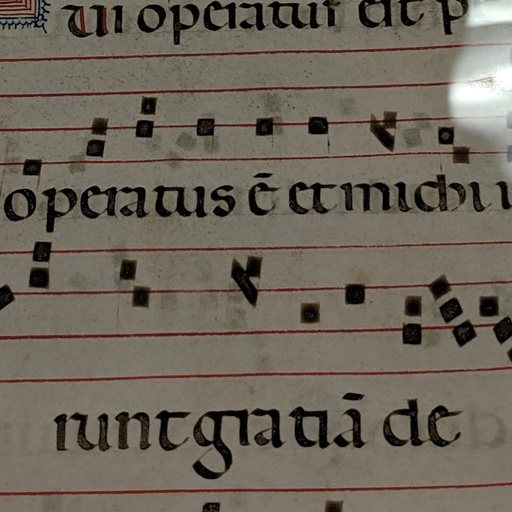 ui operatus est p
operatus ē et michi
runt gratiā de